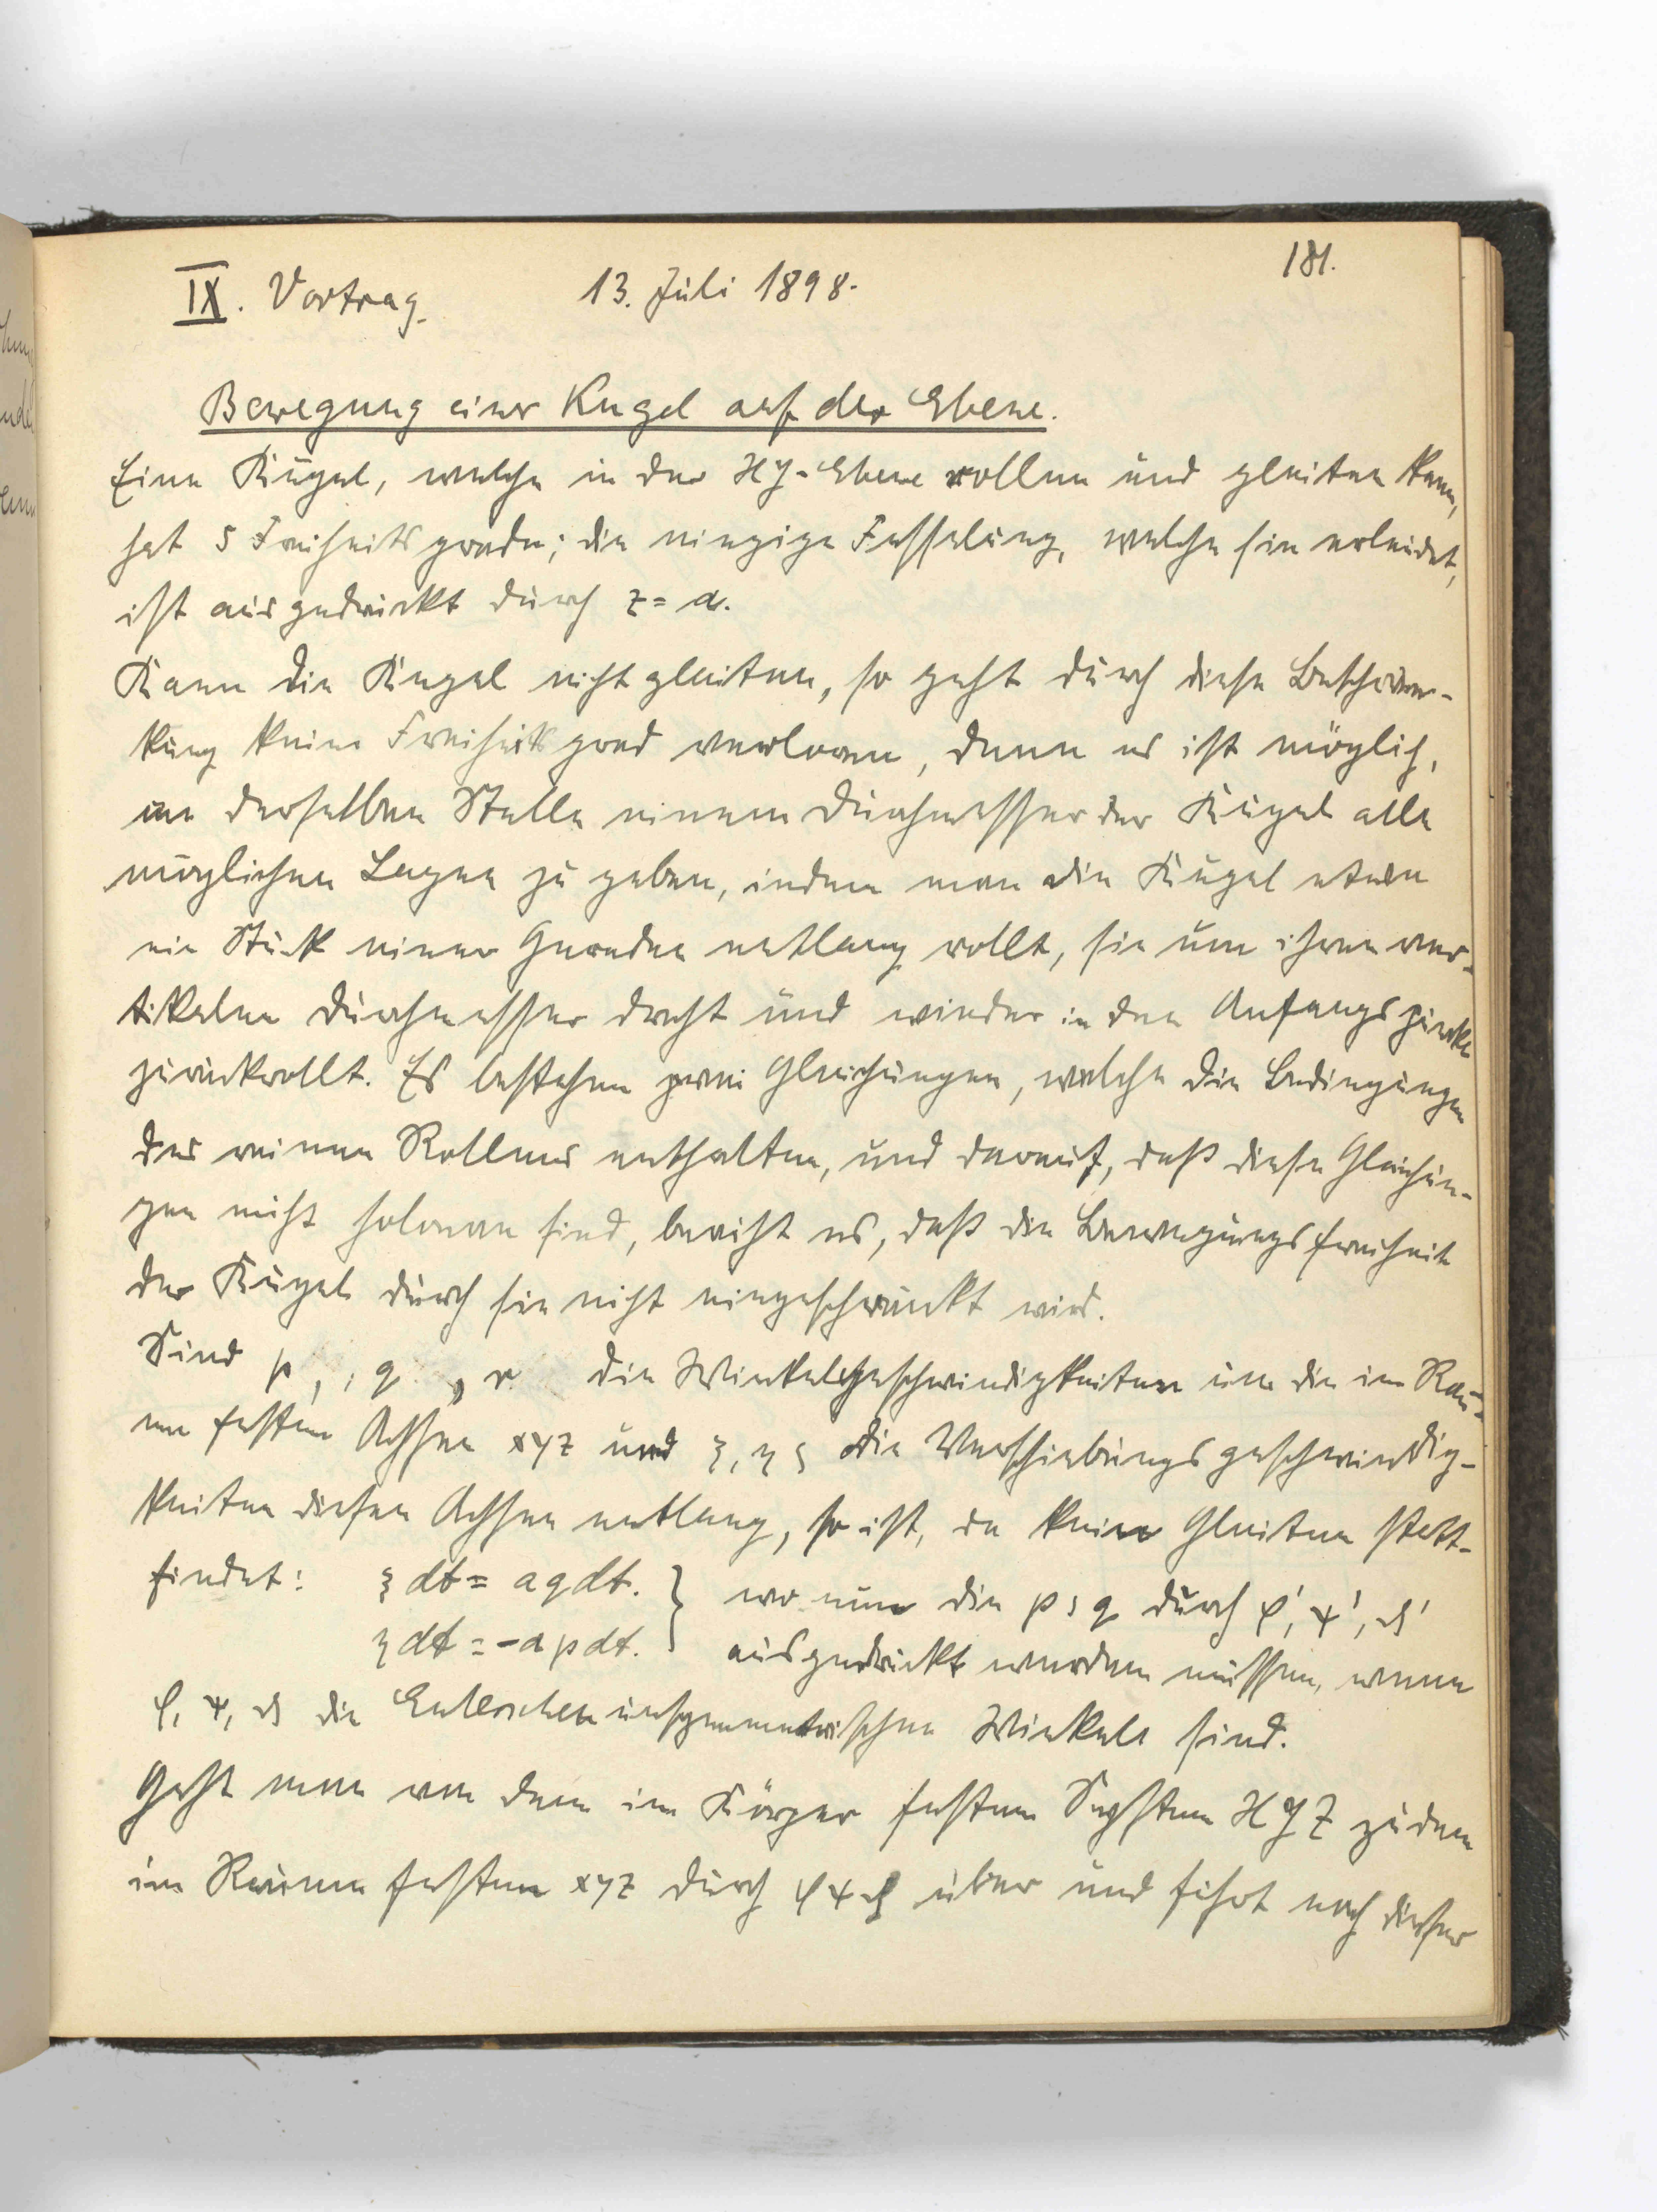 181.
IX. Vortrag. 13. Juli 1898.
Bewegung einer Kugel auf der Ebene.
Eine Kugel, welche in der XY-Ebene rollen und gleiten kann,
hat 5 Freiheitsgrade; die einzige Fesselung, welche sie erleidet,
ist ausgedrückt durch z = a.
Kann die Kugel nicht gleiten, so geht durch diese Beschrän-
kung keine Freiheitsgrad verloren, denn es ist möglich,
an derselben Stelle einem Durchmesser der Kugel alle
möglichen Lagen zu geben, indem man die Kugel etwa
ein Stück einer Geraden entlang rollt, sie um ihren ver-
tikalen Durchmesser dreht und wieder in den Anfangspunkt
zurückrollt. Es bestehen zwei Gleichungen, welche die Bedingungen
des reinen Rollens enthalten, und darauf, daß diese Gleichun-
gen nicht holonom sind, beruht es, daß die Bewegungsfreiheit
der Kugel durch sie nicht eingeschränkt wird.
Sind p, q, r die Winkelgeschwindigkeiten um die im Rau-
me festen Achsen xyz und ξ, η ζ die Verschiebungsgeschwindig-
keiten diesen Achsen entlang, so ist, da kein Gleiten statt-
findet: ξ dt = a q dt. } wo nun die p, q durch φ', ψ', ϑ'
η dt = -a p dt. ausgedrückt werden müssen, wenn
φ, ψ, ϑ die Eulerschen unsymmetrischen Winkel sind.
Geht man von dem im Körper festen System XYZ zu dem
im Raume festen xyz durch φ ψ ϑ über und führt nach dieser